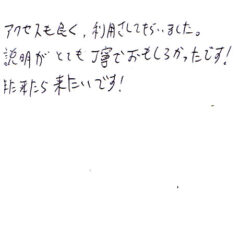 アクセスも良く、利用させてもらいました。
説明がとても丁寧でおもしろかったです!
また来たいです!